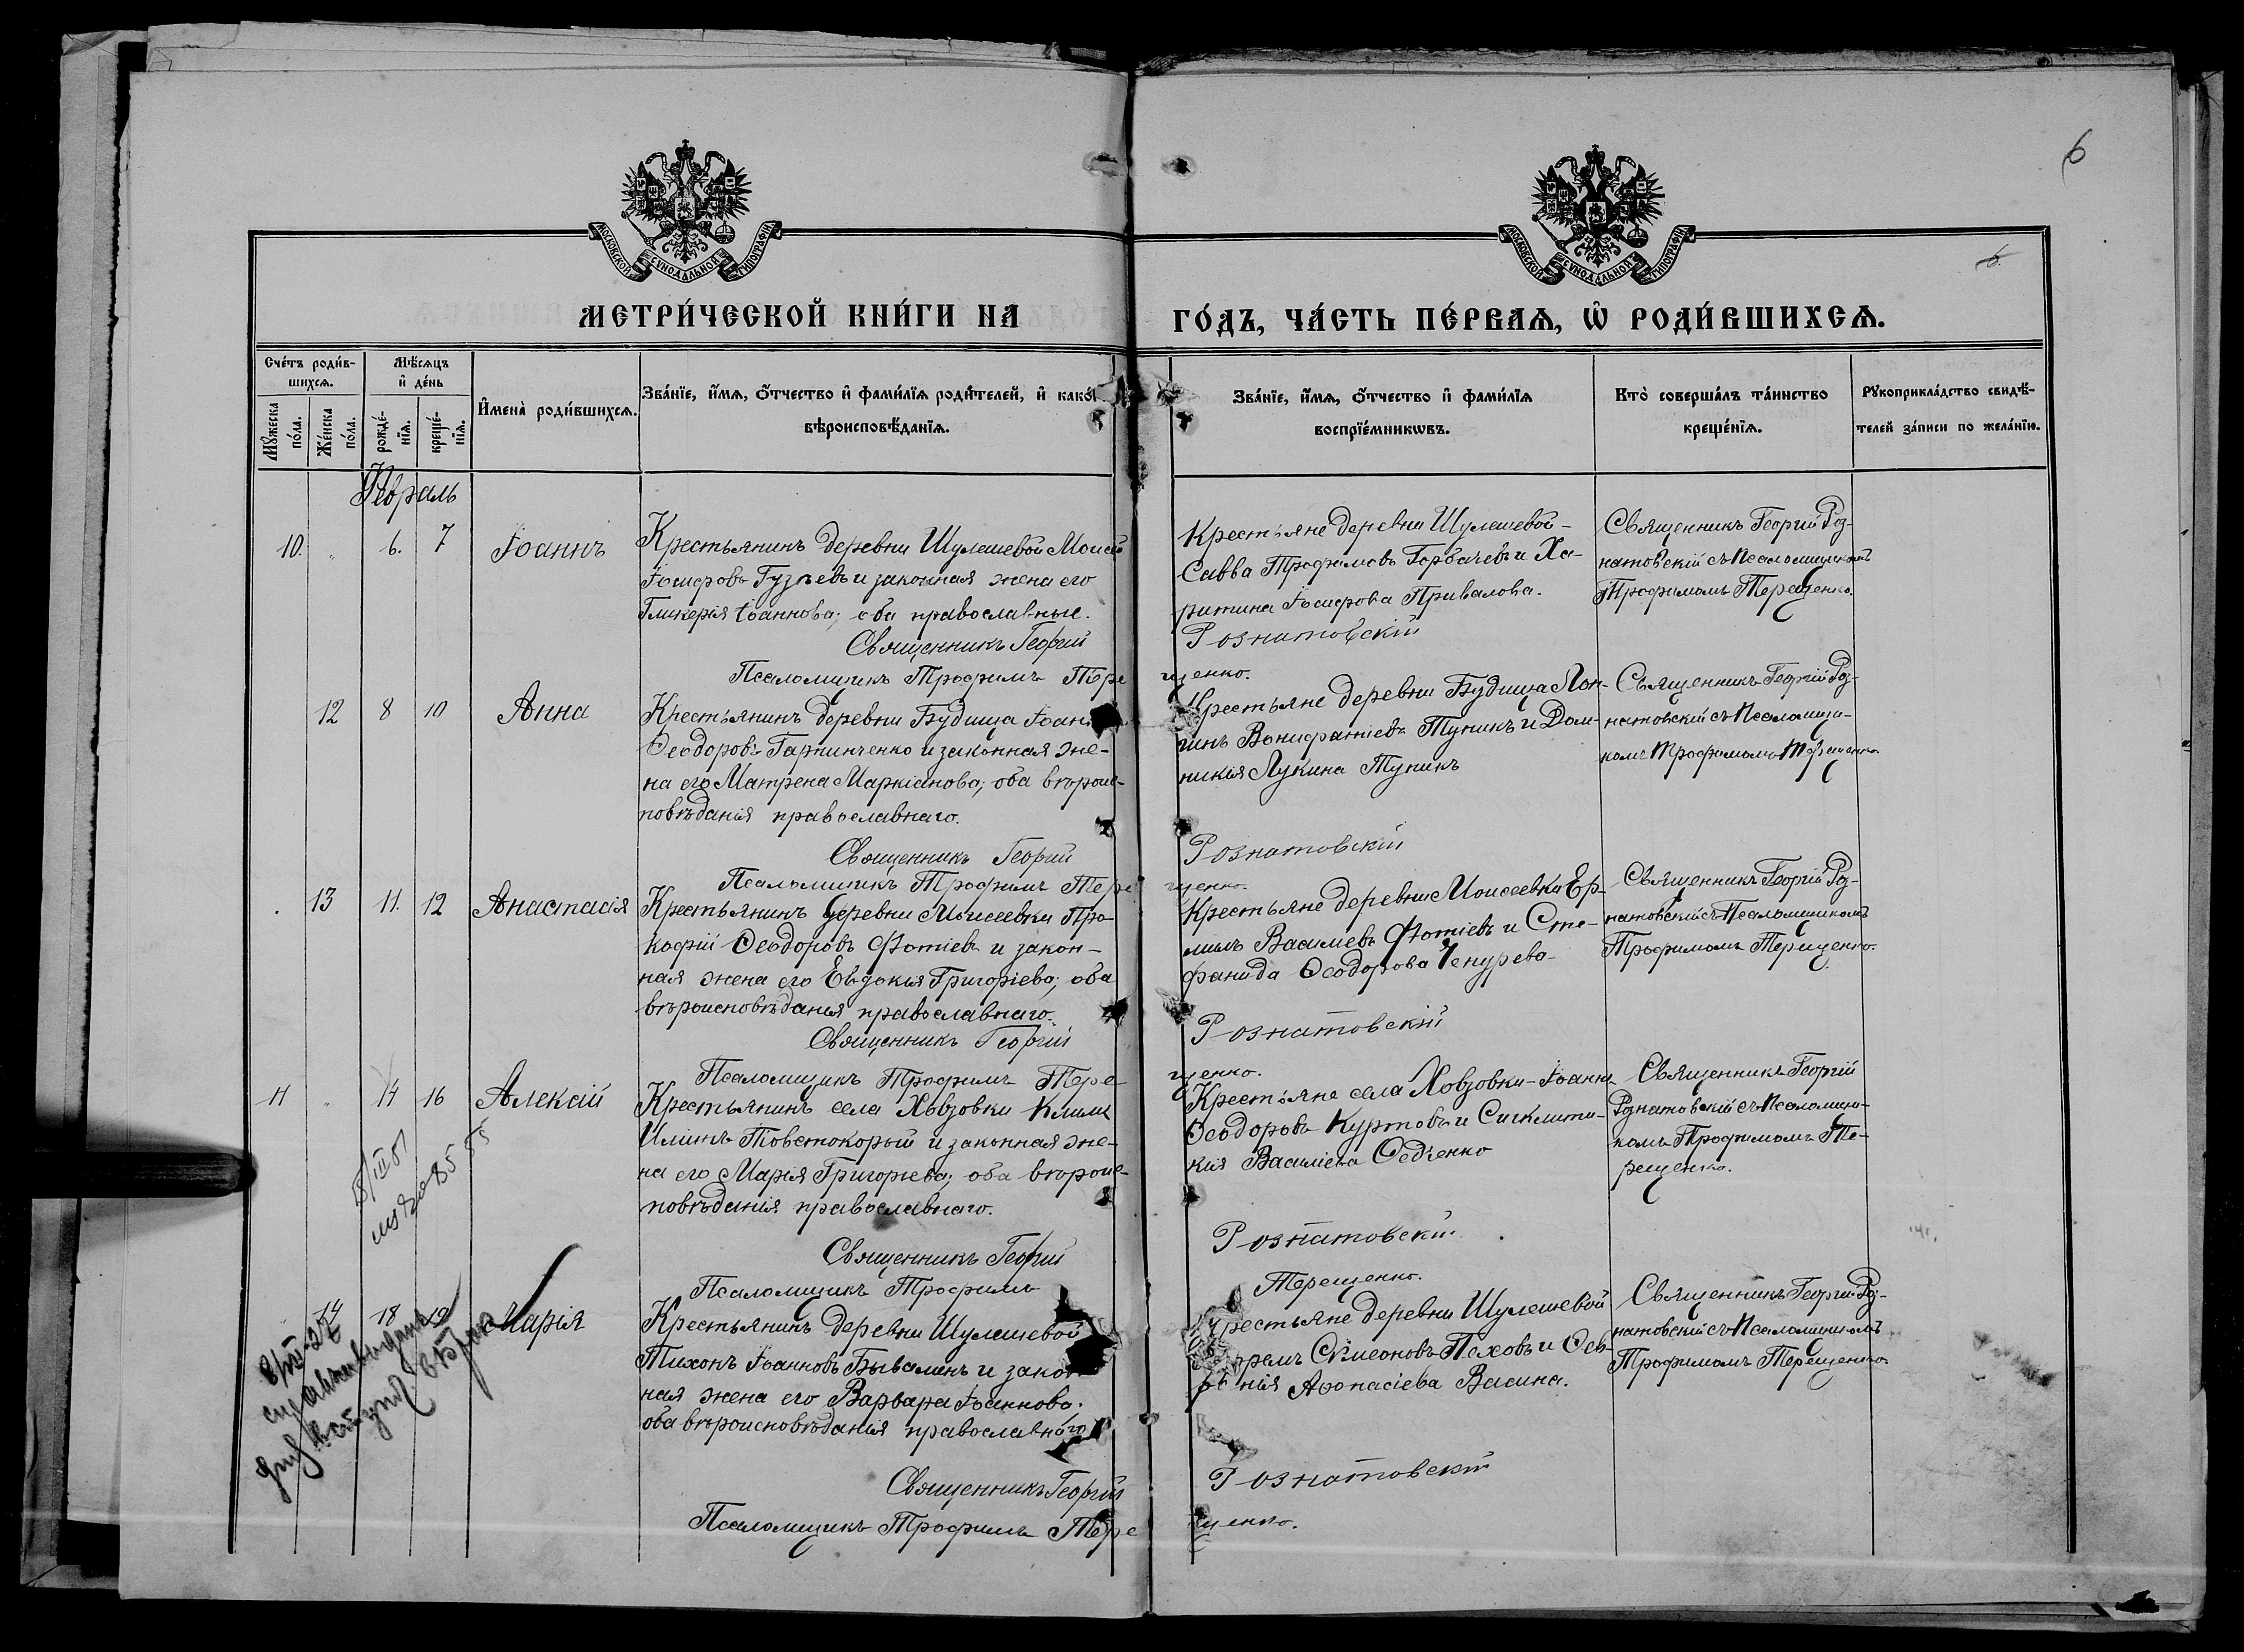 6
6.
МОСКОВСКОЙ СѴНОДАЛЬНОЙ ТИПОГРАФІИ
МОСКОВСКОЙ СѴНОДАЛЬНОЙ ТИПОГРАФІИ
МЕТРИ́ЧЕСКОЙ КНИ́ГИ НА
ГО́ДЪ, ЧА́СТЬ ПЕ́РВАѦ, Ѡ РОДИ́ВШИХСѦ.
Сче́тъ роди́в-
шихсѧ.
Мꙋжеска
по́ла.
Же́нска
по́ла.
Мѣ́сѧцъ
и҆ де́нь
рожде́-
нїѧ.
креще́-
нїѧ.
И҆мена̀ роди́вшихсѧ.
Зва́нїе, и҆́мѧ, ѻ҆́тчество и҆ фами́лїѧ роди́телей, и҆ како́й
вѣроисповѣ́данїѧ.
Зва́нїе, и҆́мѧ, ѻ҆́тчество и҆ фами́лїѧ
воспрїе́мникѡвъ.
Кто̀ соверша́лъ та́инство
креще́нїѧ.
Рꙋкоприкла́дство свидѣ́-
телей за́писи по жела́нїю.
Февраль
10. " 6. 7 Іоаннъ
Крестьянинъ деревни Шулешевой Моисей
Іосифовъ Гузѣевъ и законная жена его
Гликерія Іоаннова; оба православные.
Священникъ Георгій
Псаломщикъ Трофимъ Тере
Крестьяне деревни Шулешевой -
Савва Трофимовъ Горбачевъ и Ха-
ритина Іосифова Привалова.
Рознатовскій
щенко.
Священникъ Георгій Роз-
натовскій съ Псаломщикомъ
Трофимомъ Терещенко.
12 8 10 Анна
Крестьянинъ деревни Будища
Ѳеодоровъ Гарпинченко и законная же-
на его Матрена Маркіанова; оба вѣроис-
повѣданія православнаго.
Священникъ Георгій
Псаломщикъ Трофимъ Тере
Крестьяне деревни Будища Лон-
гинъ Вонифатіевъ Тупикъ и Дом-
никія Лукина Тупикъ
Рознатовскій
щенко.
Священникъ Георгій Роз-
натовскій съ Псаломщи-
комъ Трофимомъ Терещенко
13 11. 12 Анастасія
Крестьянинъ деревни Моисеевки Про-
кофій Ѳеодоровъ Фотіевъ и закон-
ная жена его Евдокія Григоріева; оба
вѣроисповѣданія православнаго.
Священникъ Георгій
Псаломщикъ Трофимъ Тере
Крестьяне деревни Моисеевки Ер-
милъ Васильевъ Фотіевъ и Сте-
фанида Ѳеодорова Чепурева
Рознатовскій
щенко.
Священникъ Георгій Роз-
натовскій съ Псаломщикомъ
Трофимомъ Терещенко.
11 " 14 16 Алексій
Крестьянинъ села Ховзовки Климъ
Ильинъ Товстокорый и законная же-
на его Марія Григорьева; оба вѣроис-
повѣданія православнаго.
Священникъ Георгій
Псаломщикъ Трофимъ
Крестьяне села Ховзовки - Іоаннъ
Ѳеодоровъ Куртовъ и Сигклити-
кія Василіева Федченко
Рознатовскій
Терещенко.
Священникъ Георгій
Рознатовскій съ Псаломщи-
комъ Трофимомъ Те-
рещенко.
14 18 19 Марія
Крестьянинъ деревни Шулешевой
Тихонъ Іоанновъ Бывалинъ и закон
ная жена его Варвара Іоаннова.
оба вѣроисповѣданія православнаго
Священникъ Георгій
Псаломщикъ Трофимъ Тере
Крестьяне деревни Шулешевой
Симеоновъ Пеховъ и Фев-
ронія Аѳонасіева Васина.
Рознатовскій
щенко.
Священникъ Георгій Роз-
натовскій съ Псаломщикомъ
Трофимомъ Терещенко.